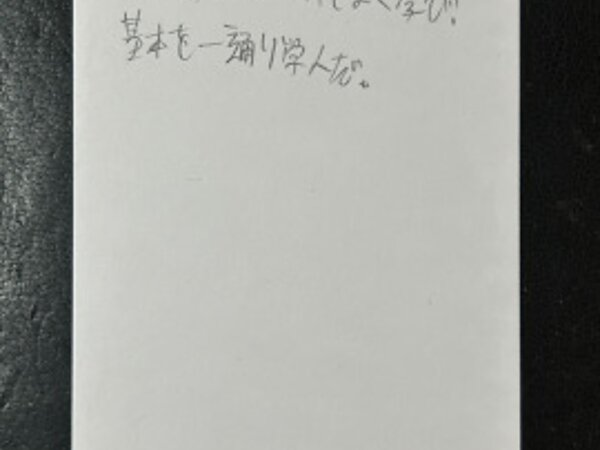 よく学び!
基本を一通り学んだ。